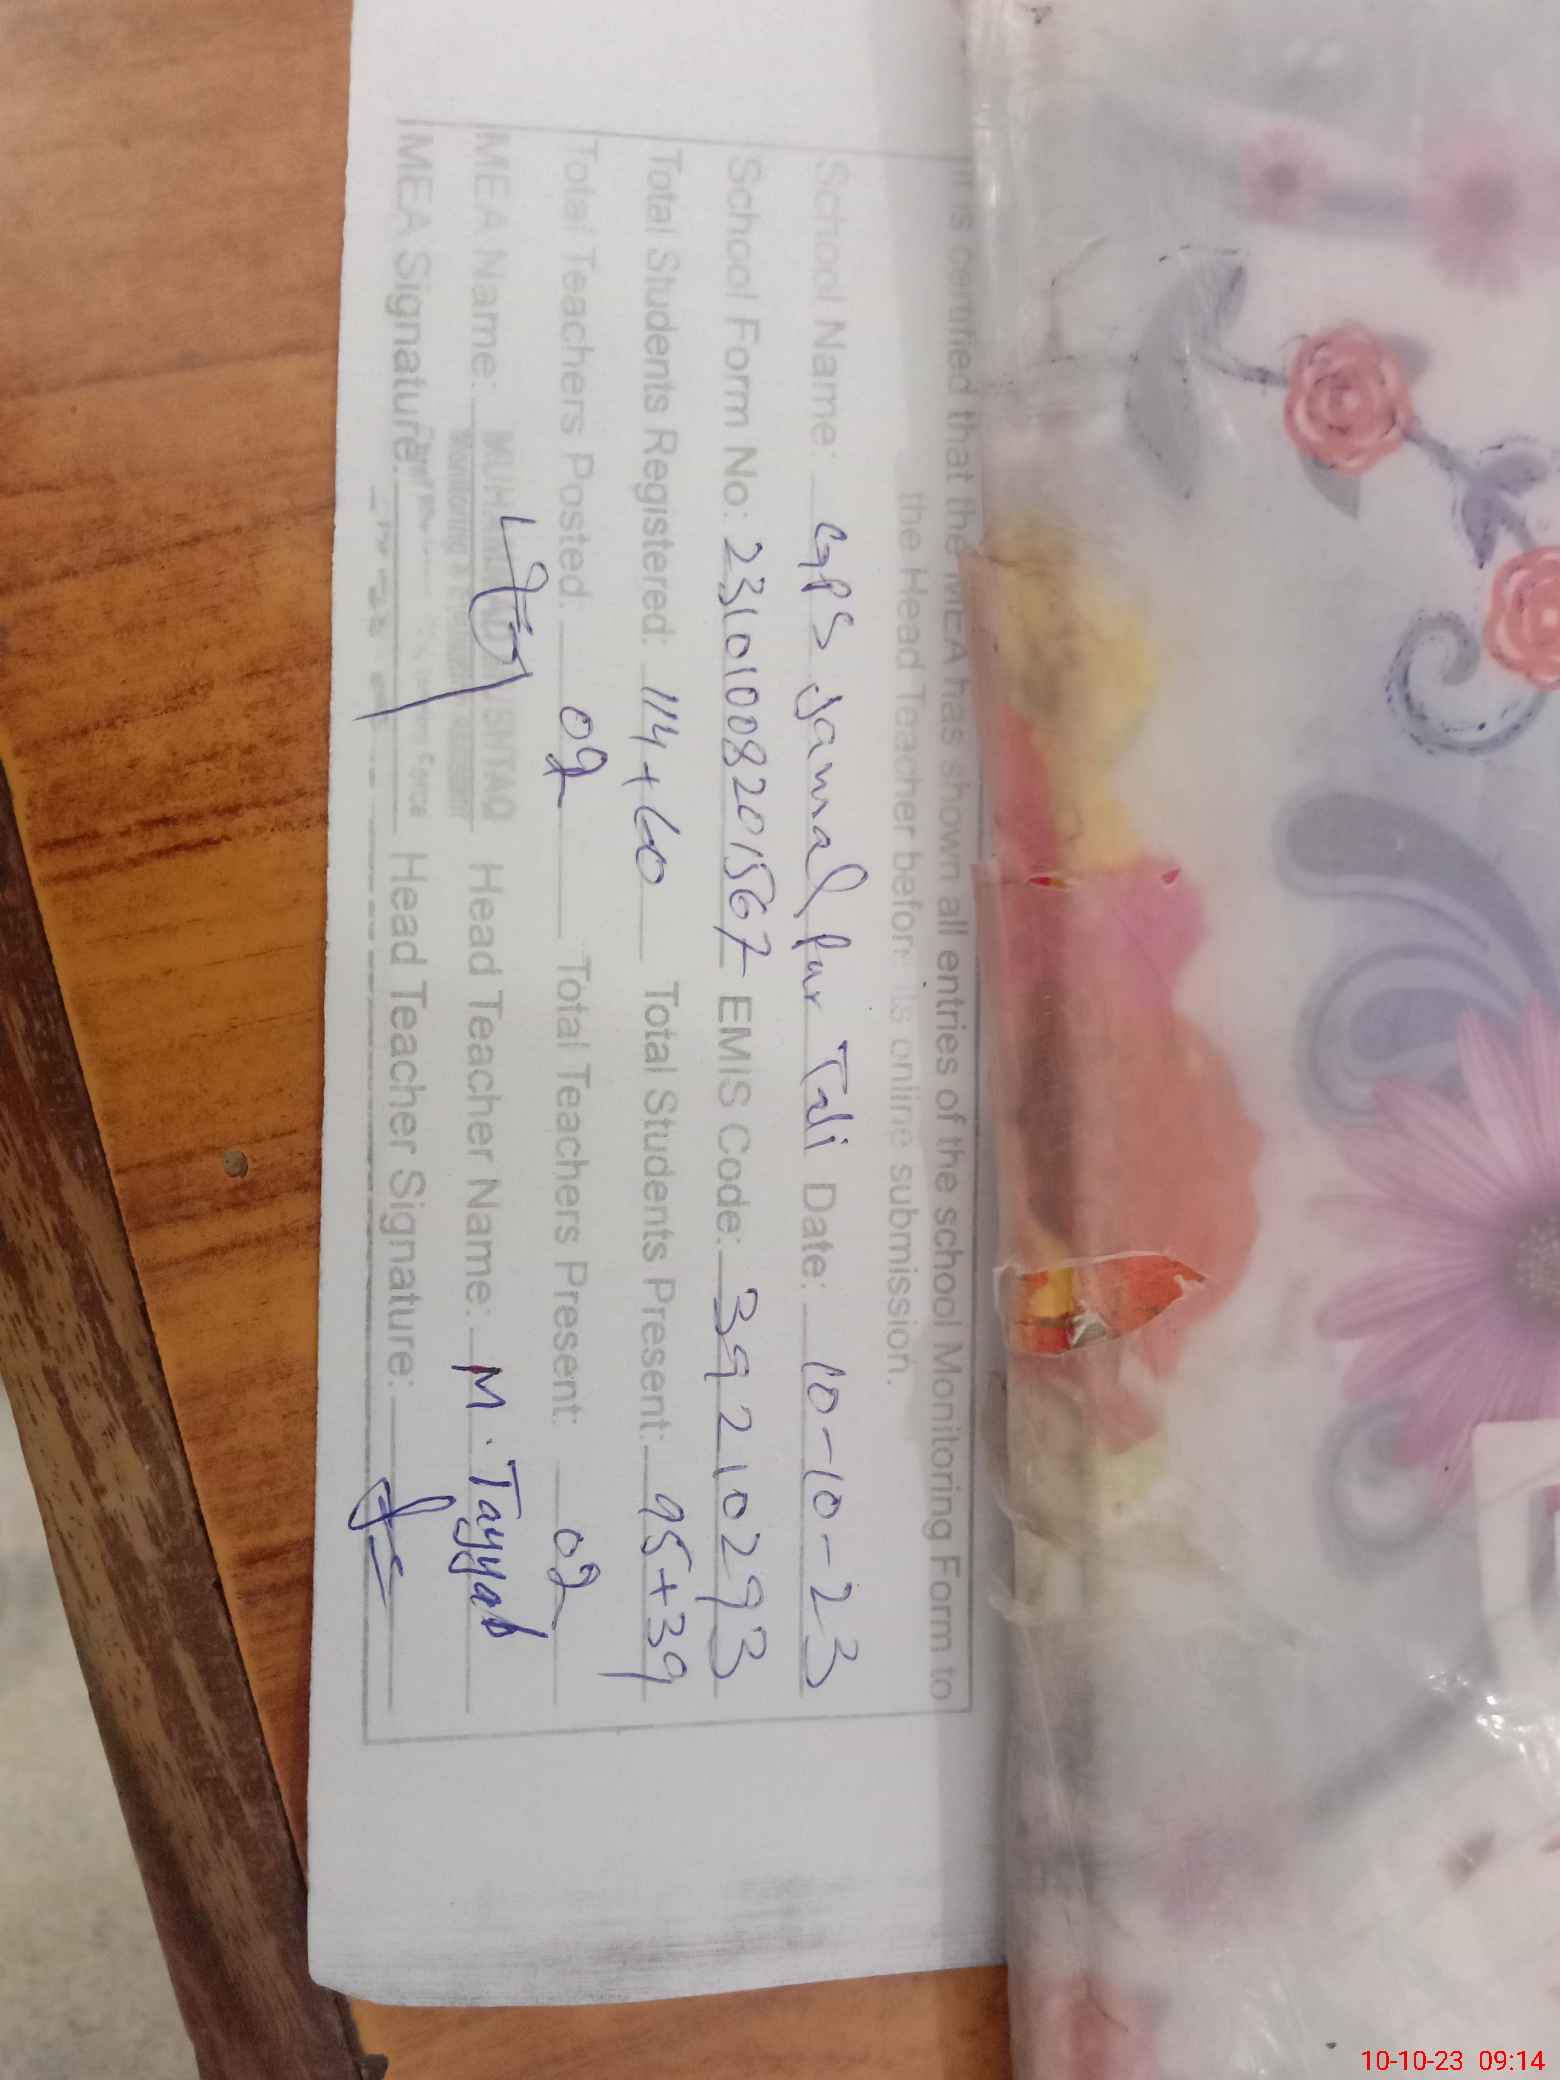 It is certified that the MEA has shown all entries of the school Monitoring Form to
the Head Teacher before its online submission.
School Name: GPS Jamal Pur Tali Date: 10-10-23
School Form No: 23101008201567 EMIS Code: 39210293
Total Students Registered: 114+60 Total Students Present: 95+39
Total Teachers Posted: 02 Total Teachers Present: 02
MEA Name: ISHTAQ Head Teacher Name: M. Tayyab
MEA Signature: Head Teacher Signature:
10-10-23 09:14